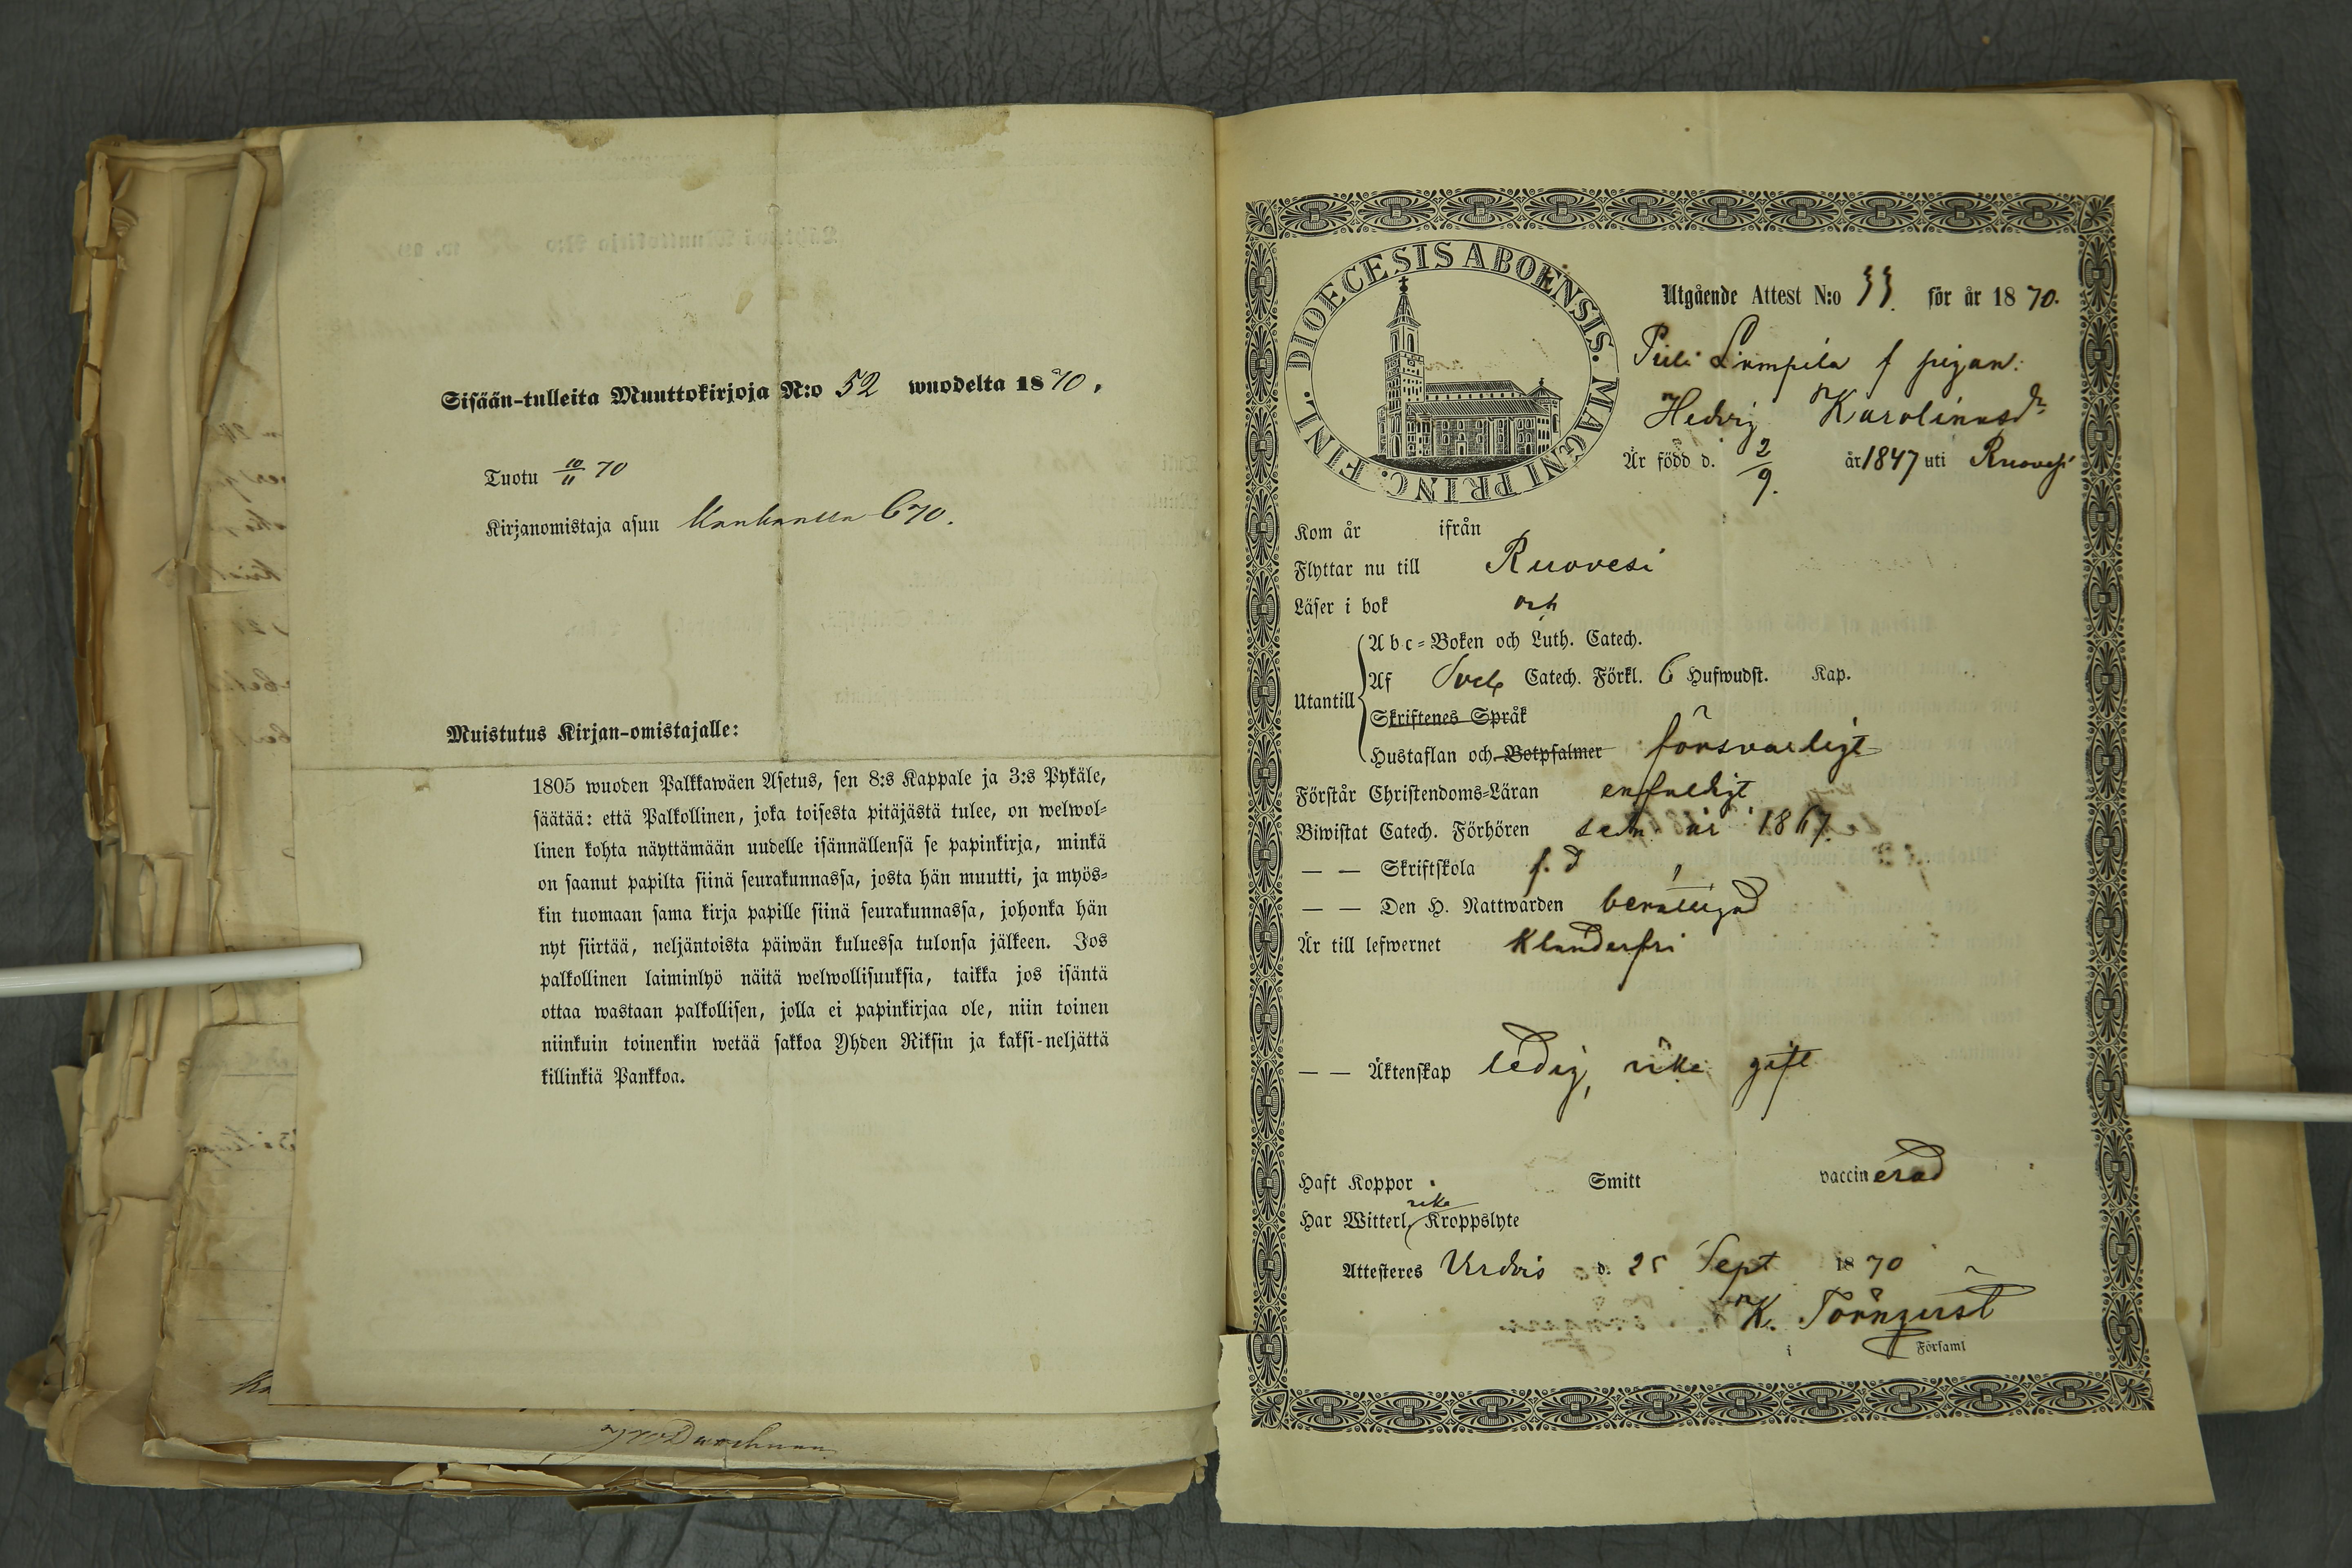 Sisään-tulleita Muuttokirjoja N:o 52 wuodelta 1870.
Tuotu 10/11 70
Kirjanomistaja asuu C70.
Muistutus Kirjan-omistajalle:
1805 wuoden Palkkawäen Asetus, sen 8:s Kappale ja 3:s Pykäle,
säätää: että Palkollinen, joka toisesta pitäjästä tulee, on welwol-
linen kohta näyttämään uudelle isännällensä se papinkirja, minkä
on saanut papilta siinä seurakunnassa, josta hän muutti, ja myös-
kin tuomaan sama kirja papille siinä seurakunnassa, johonka hän
nyt siirtää, neljäntoista päiwän kuluessa tulonsa jälkeen. Jos
palkollinen laiminlyö näitä welwollisuuksia, taikka jos isäntä
ottaa wastaan palkollisen, jolla ei papinkirjaa ole, niin toinen
niinkuin toinenkin wetää sakkoa Yhden Riksin ja kaksi-neljättä
killinkiä Pankkoa.
DIOECESIS ABOENSIS. MAGNI PRINC. FINL.
Utgående Attest N:o 33. för år 1870.
Lumpila f pigan
Hedvig Karolinasdr
Är född d. 2/9. år 1847 uti Ruovesi
Kom år ifrån
Flyttar nu till Ruovesi
Läser i bok och
Utantill
Abc-Boken och Luth. Catech.
Af Sveb Catech. Förkl. 6 Hufwudst. Kap.
Skriftenes Språk
Hustaflan och Botpsalmer försvarligt
Förstår Christendoms-Läran enfaldigt
Biwistat Catech. Förhören sedn. år 1867
— — Skriftskola f. d
— — Den H. Nattwarden berättigad
Är till lefwernet klanderfri
— — Äktenskap ledig, icke gift
Haft Koppor Smitt vaccinerad
Har Witterl. icke Kroppslyte
Attesteres d. 25 Sept 1870
K. Törnqvist
i Församl